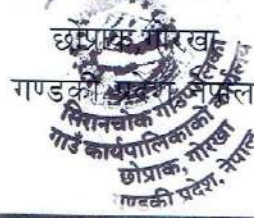 छोप्राक, गोरखा
गण्डकी प्रदेश, नेपाल
सिरानचोक गाउँपालिका
गाउँ कार्यपालिकाको कार्यालय
छोप्राक, गोरखा
गण्डकी प्रदेश, नेपाल